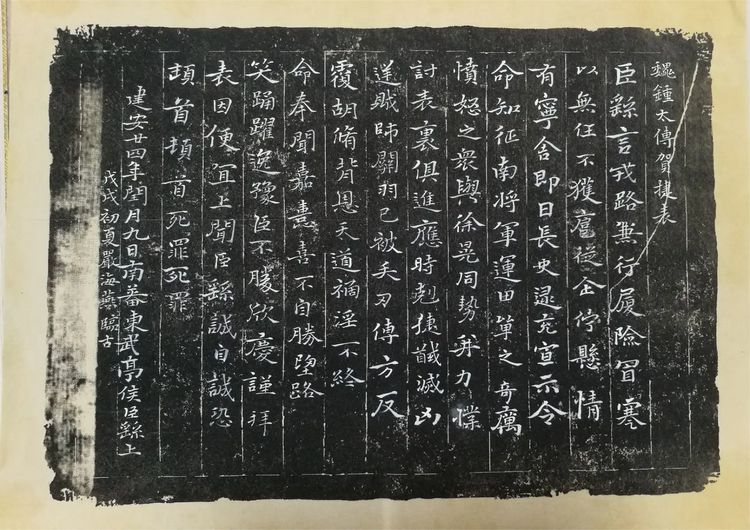 魏鍾太傅賀捷表
臣繇言戎路兼行履險冒寒
以無任不獲扈從企佇懸情
有寧舍即日長史逯充宣示令
命知征南將軍運田單之奇厲
憤怒之衆與徐晃同勢并力撲
討表裏俱進應時剋捷馘滅凶
逆賊帥關羽已被矢刃傅方反
覆胡脩背恩天道禍淫不終
命奉聞嘉憙喜不自勝望路
笑踊躍逸豫臣不勝欣慶謹拜
表因便宜上聞臣繇誠自誠恐
頓首頓首死罪死罪
建安廿四年閏月九日南蕃東武亭侯臣繇上
戊戌初夏嚴海燕臨古